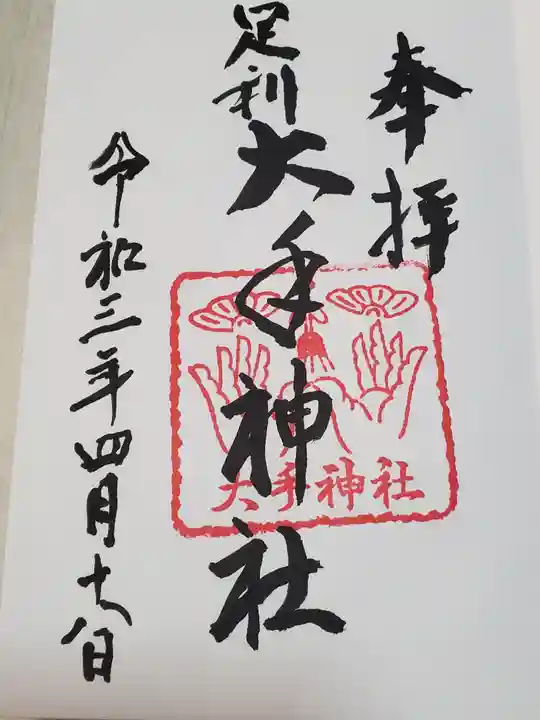 奉拝
足利
大手神社
大手神社
令和三年四月十八日